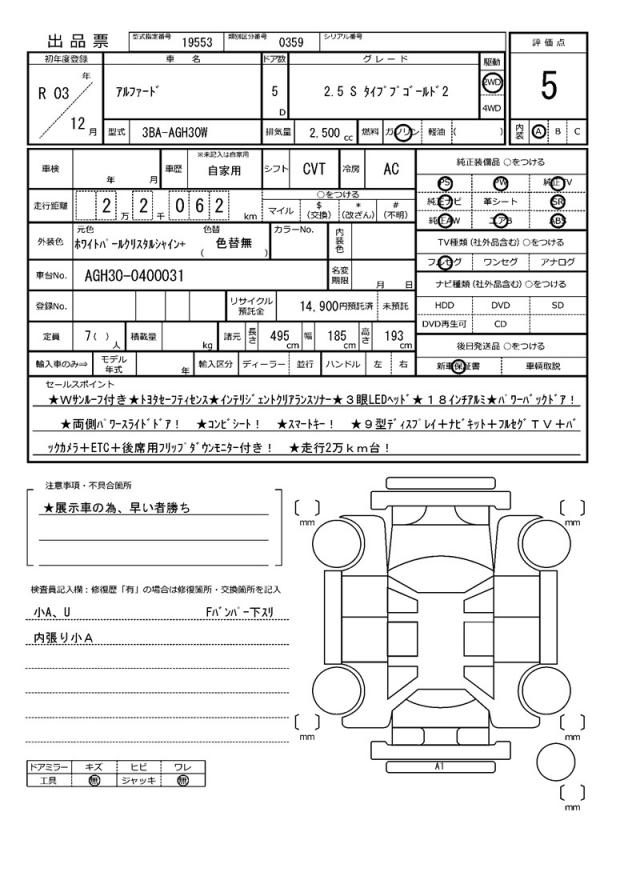 出品票 型式指定番号 19553 類別区分番号 0359 シリアル番号
初年度登録 車名 ドア数 グレード 駆動 評価点
R 03 年 12 月 アルファード 5 D 2.5 S タイプブゴールド2 2WD 4WD 5
型式 3BA-AGH30W 排気量 2,500 cc 燃料 ガソリン 軽油 ( ) 内装 A B C
車検 年 月 車歴 ※未記入は自家用 自家用 シフト CVT 冷房 AC 純正装備品 ○をつける
PS PW 純正TV
走行距離 2 万 2 千 0 6 2 km ○をつける マイル $ (交換) * (改ざん) # (不明) 純正ナビ 革シート SR
純正AW エアB ABS
外装色 元色 ホワイトパールクリスタルシャイン+ 色替 ( 色替無 ) カラーNo. 内装色 TV種類 (社外品含む) ○をつける
フルセグ ワンセグ アナログ
車台No. AGH30-0400031 名変期限 月 日 ナビ種類 (社外品含む) ○をつける
登録No. リサイクル預託金 14,900円預託済 未預託 HDD DVD SD
DVD再生可 CD
定員 7( ) 人 積載量 kg 諸元 長さ 495 cm 幅 185 cm 高さ 193 cm 後日発送品 ○をつける
輸入車のみ⇒ モデル年式 年 輸入区分 ディーラー 並行 ハンドル 左 右 新車保証書 車輌取説
セールスポイント
★Wサンルーフ付き★トヨタセーフティセンス★インテリジェントクリアランスソナー★3眼LEDヘッド★18インチアルミ★パワーバックドア!
★両側パワースライドドア! ★コンビシート! ★スマートキー! ★9型ディスプレイ+ナビキット+フルセグTV+バ
ックカメラ+ETC+後席用フリップダウンモニター付き! ★走行2万km台!
注意事項・不具合箇所
★展示車の為、早い者勝ち
検査員記入欄:修復歴「有」の場合は修復箇所・交換箇所を記入
小A、U Fバンパー下スリ
内張り小A
ドアミラー キズ ヒビ ワレ
工具 無 ジャッキ 無
mm
mm
mm
mm
A1
mm